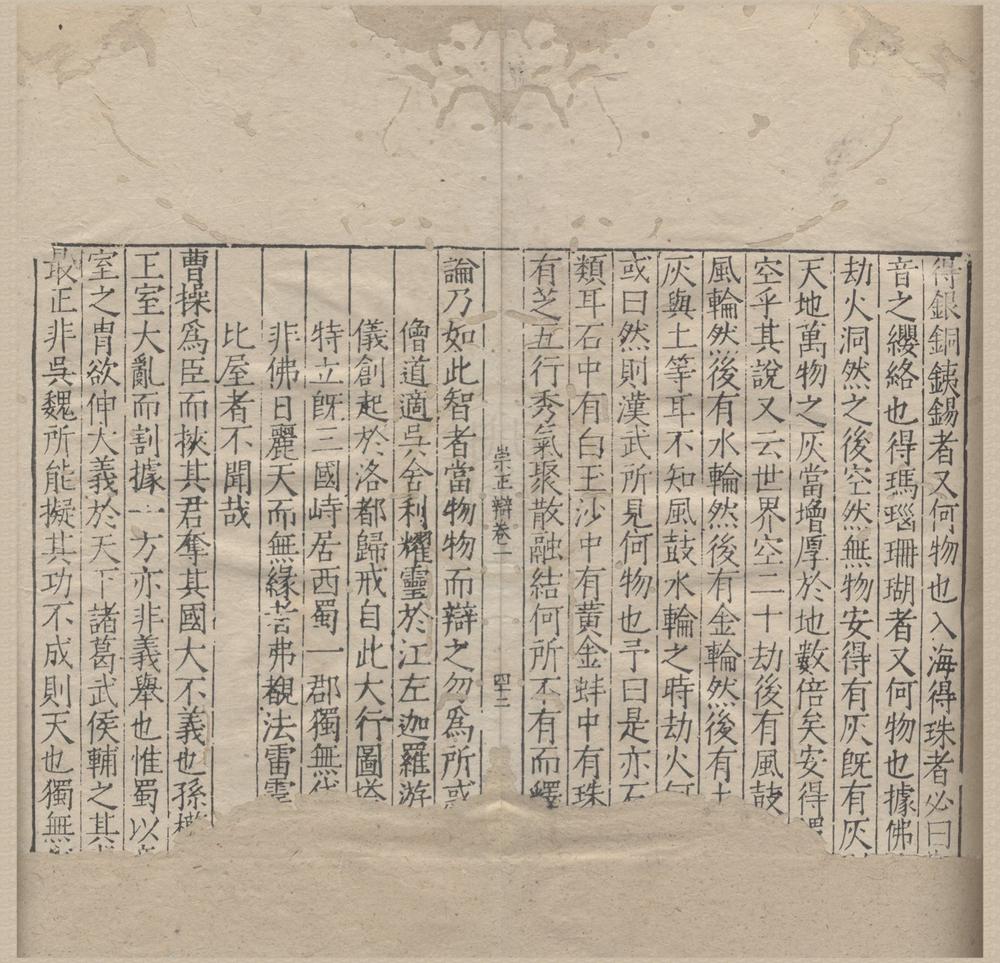 得銀銅銕錫者又何物也入海得珠者必曰
音之纓絡也得瑪瑙珊瑚者又何物也據佛
劫火洞然之後空然無物安得有灰旣有灰
天地萬物之灰當增厚於地數倍矣安得
空乎其說又云世界空二十劫後有風鼓
風輪然後有水輪然後有金輪然後有土
灰與土等耳不知風鼓水輪之時劫火何
或曰然則漢武所見何物也予曰是亦石
類耳石中有白玉沙中有黃金蚌中有珠
有芝五行秀氣聚散融結何所不有而嶧
崇正辯卷二
四十二
論乃如此智者當物物而辯之勿爲所惑
僧道適吳舍利耀靈於江左迦羅游
儀創起於洛都歸戒自此大行圖塔
特立旣三國峙居西蜀一郡獨無
非佛日麗天而無緣者弗覩法雷震
比屋者不聞哉
曹操爲臣而挾其君奪其國大不義也孫權
王室大亂而割據一方亦非義舉也惟蜀以
室之胄欲伸大義於天下諸葛武侯輔之其
最正非吳魏所能擬其功不成則天也獨無